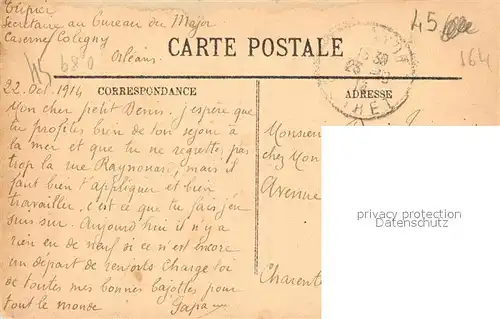 Secrétaire au bureau du Major
Caserne Coligny
Orléans
45
680
45
164
CARTE POSTALE
22 Oct. 1914
CORRESPONDANCE
ADRESSE
Mon cher petit Denis. j'espère que
tu profites bien de ton sejour à
la mer et que tu ne regrettes pas
trop la rue Raynouard, mais il
faut bien t'appliquer et bien
travailler. c'est ce que tu fais j'en
suis sur. Aujourd'hui il n'y a
rien eu de neuf si ce n'est encore
un départ de renforts Charge toi
de toutes mes bonnes pour
tout le monde
Monsieur
chez Mon
Avenue
Charent
privacy protection